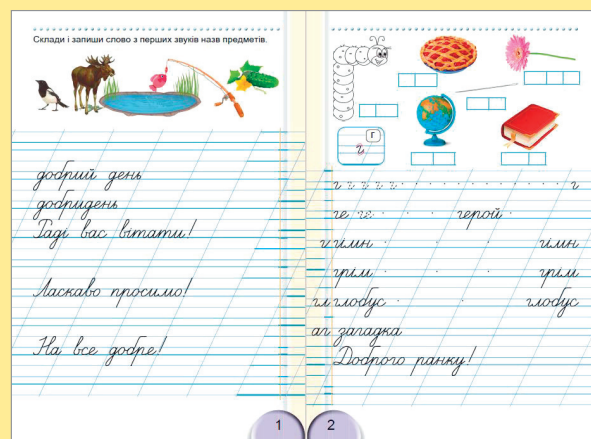 Склади і запиши слово з перших звуків назв предметів.
добрий день
добридень
Раді вас вітати!
Ласкаво просимо!
На все добре!
1
г
г
г г г г г г
ге ге герой
г гімн гімн
грім грім
гл глобус глобус
аг загадка
Доброго ранку!
2